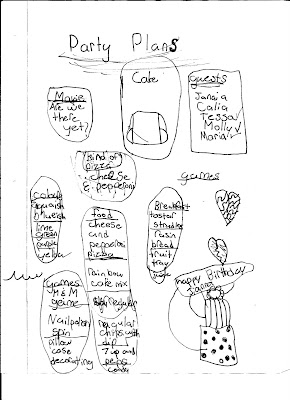 Party Plans
Cake
Movie
Are we
there
yet?
guests
Janaia
Calia
Tessa
Molly
Maria
kind of
pizza
cheese
& pepperoni
games
colours
blueish
lime
green
purple
yellow
food
cheese
and
pepperoni
Pizza
rainbow
cake mix
regular
chips with
dip
7 up and
candy
Breakfast
toster
strudles
rasin
bread
fruit
tray
games
M & M
game
Nailpolish
spin
pillow
case
decorating
happy Birthday